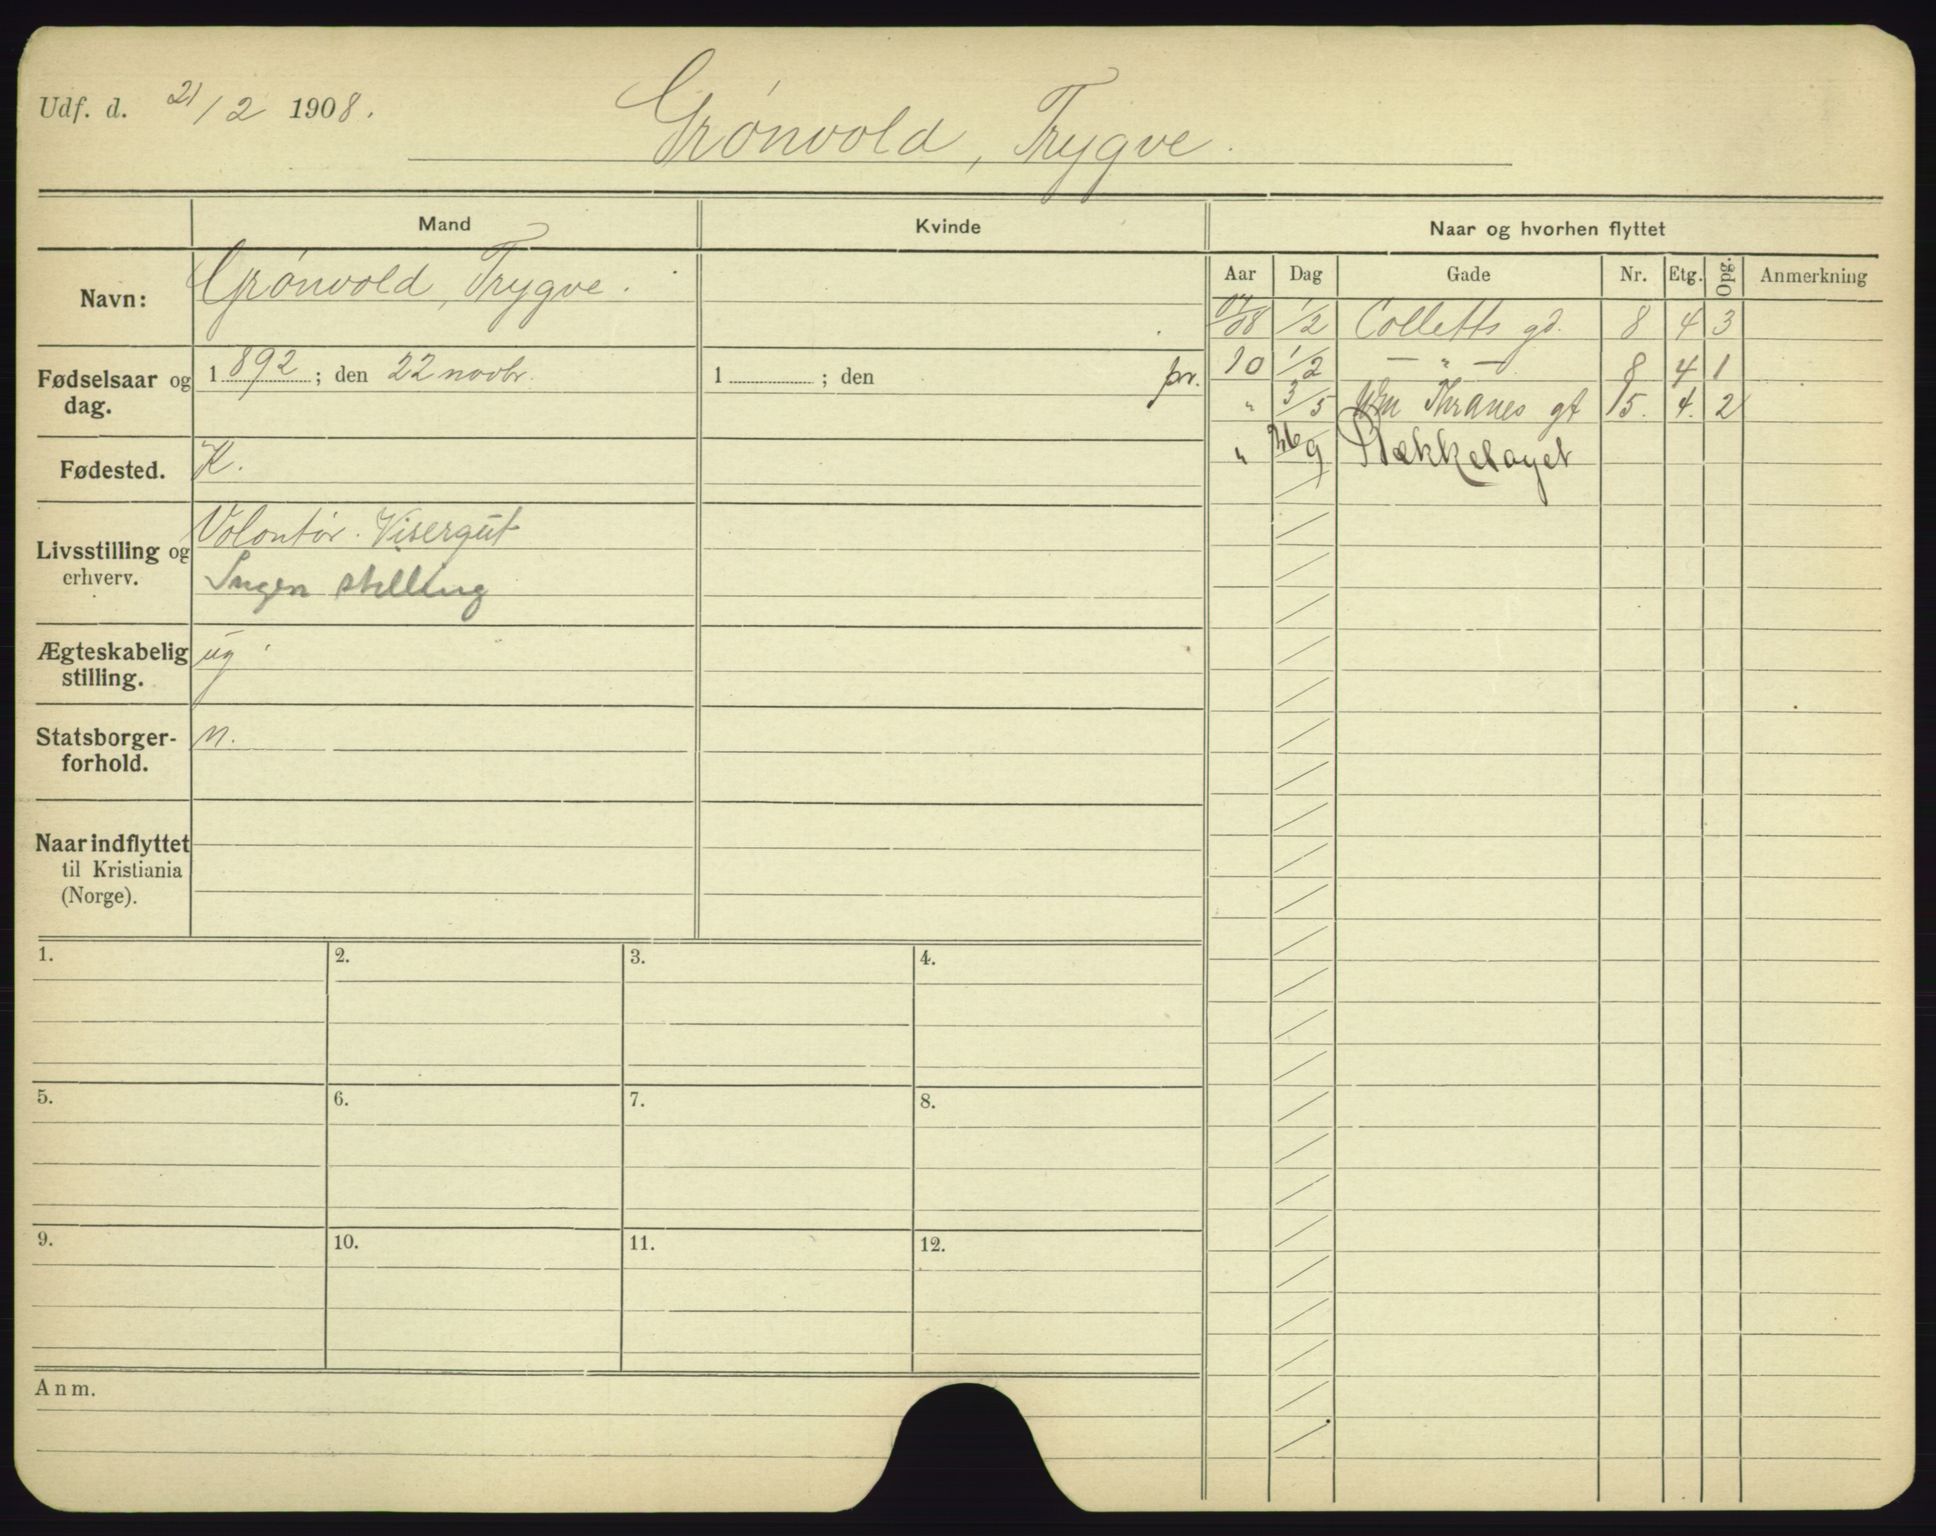 Udf. d. 21/2 1908.
Grønvold, Trygve.
Mand
Kvinde
Naar og hvorhen flyttet
Navn:
Grønvold, Trygve.
Fødselsaar og dag.
1892; den 22 novbr.
1 ; den
Fødested.
K.
Livsstilling og erhverv.
Volontør. Visergut
Ingen stilling
Ægteskabelig stilling.
ug
Statsborger-
forhold.
n.
Naar indflyttet
til Kristiania
(Norge).
Aar Dag Gade Nr. Etg. Opg. Anmerkning
08 1/2 Colletts gd. 8 4 3
pr. 10 1/2 — " — 8 4 1
" 3/5 Wm Thranes gt 15. 4. 2
" 26/9 Bækkelaget
1. 2. 3. 4.
5. 6. 7. 8.
9. 10. 11. 12.
Anm.